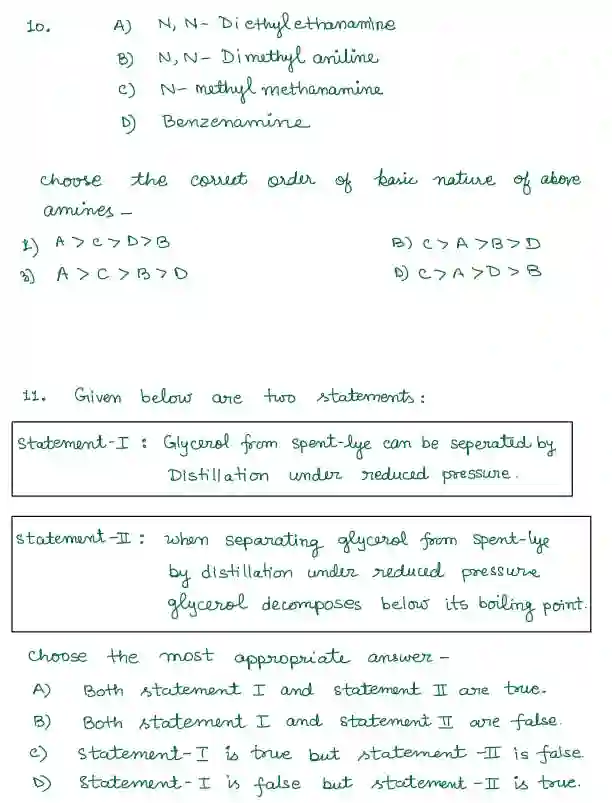 10. A) N, N- Diethylethanamine
B) N, N- Dimethyl aniline
C) N- methyl methanamine
D) Benzenamine
choose the correct order of basic nature of above
amines -
1) A > C > D > B B) C > A > B > D
3) A > C > B > D D) C > A > D > B
11. Given below are two statements :
Statement-I : Glycerol from spent-lye can be seperated by
Distillation under reduced pressure.
statement-II : when separating glycerol from spent-lye
by distillation under reduced pressure
glycerol decomposes below its boiling point.
choose the most appropriate answer -
A) Both statement I and statement II are true.
B) Both statement I and statement II are false.
c) statement-I is true but statement -II is false.
D) Statement-I is false but statement -II is true.